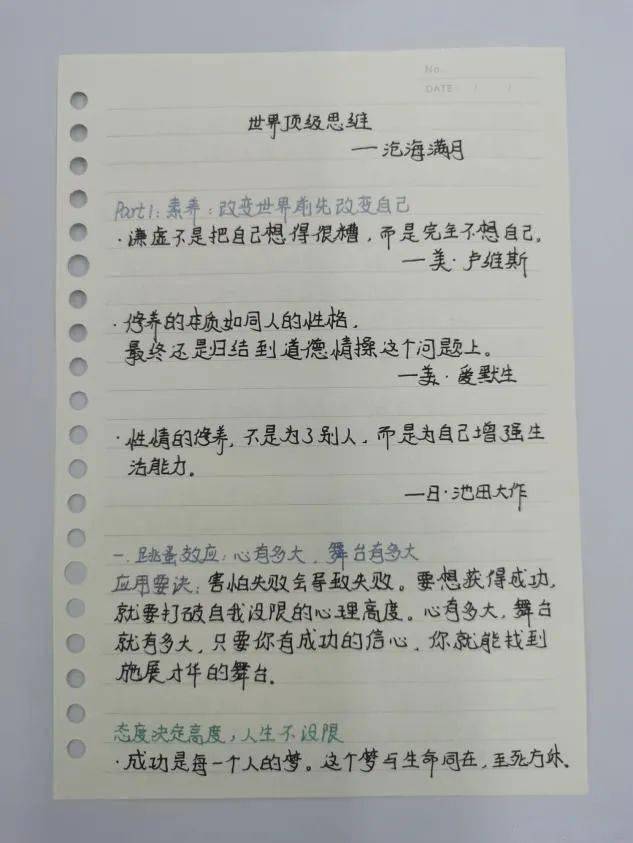 No.
DATE / /
世界顶级思维
—沧海满月
Part1:素养:改变世界前先改变自己
·谦虚不是把自己想得很糟,而是完全不想自己。
—美·卢维斯
·修养的本质如同人的性格,
最终还是归结到道德情操这个问题上。
—美·爱默生
·性情的修养,不是为了别人,而是为自己增强生
活能力。
—日·池田大作
一.跳蚤效应:心有多大,舞台有多大
应用要诀:害怕失败会导致失败。要想获得成功,
就要打破自我设限的心理高度。心有多大,舞台
就有多大,只要你有成功的信心,你就能找到
施展才华的舞台.
态度决定高度,人生不设限
·成功是每一个人的梦。这个梦与生命同在,至死方休.